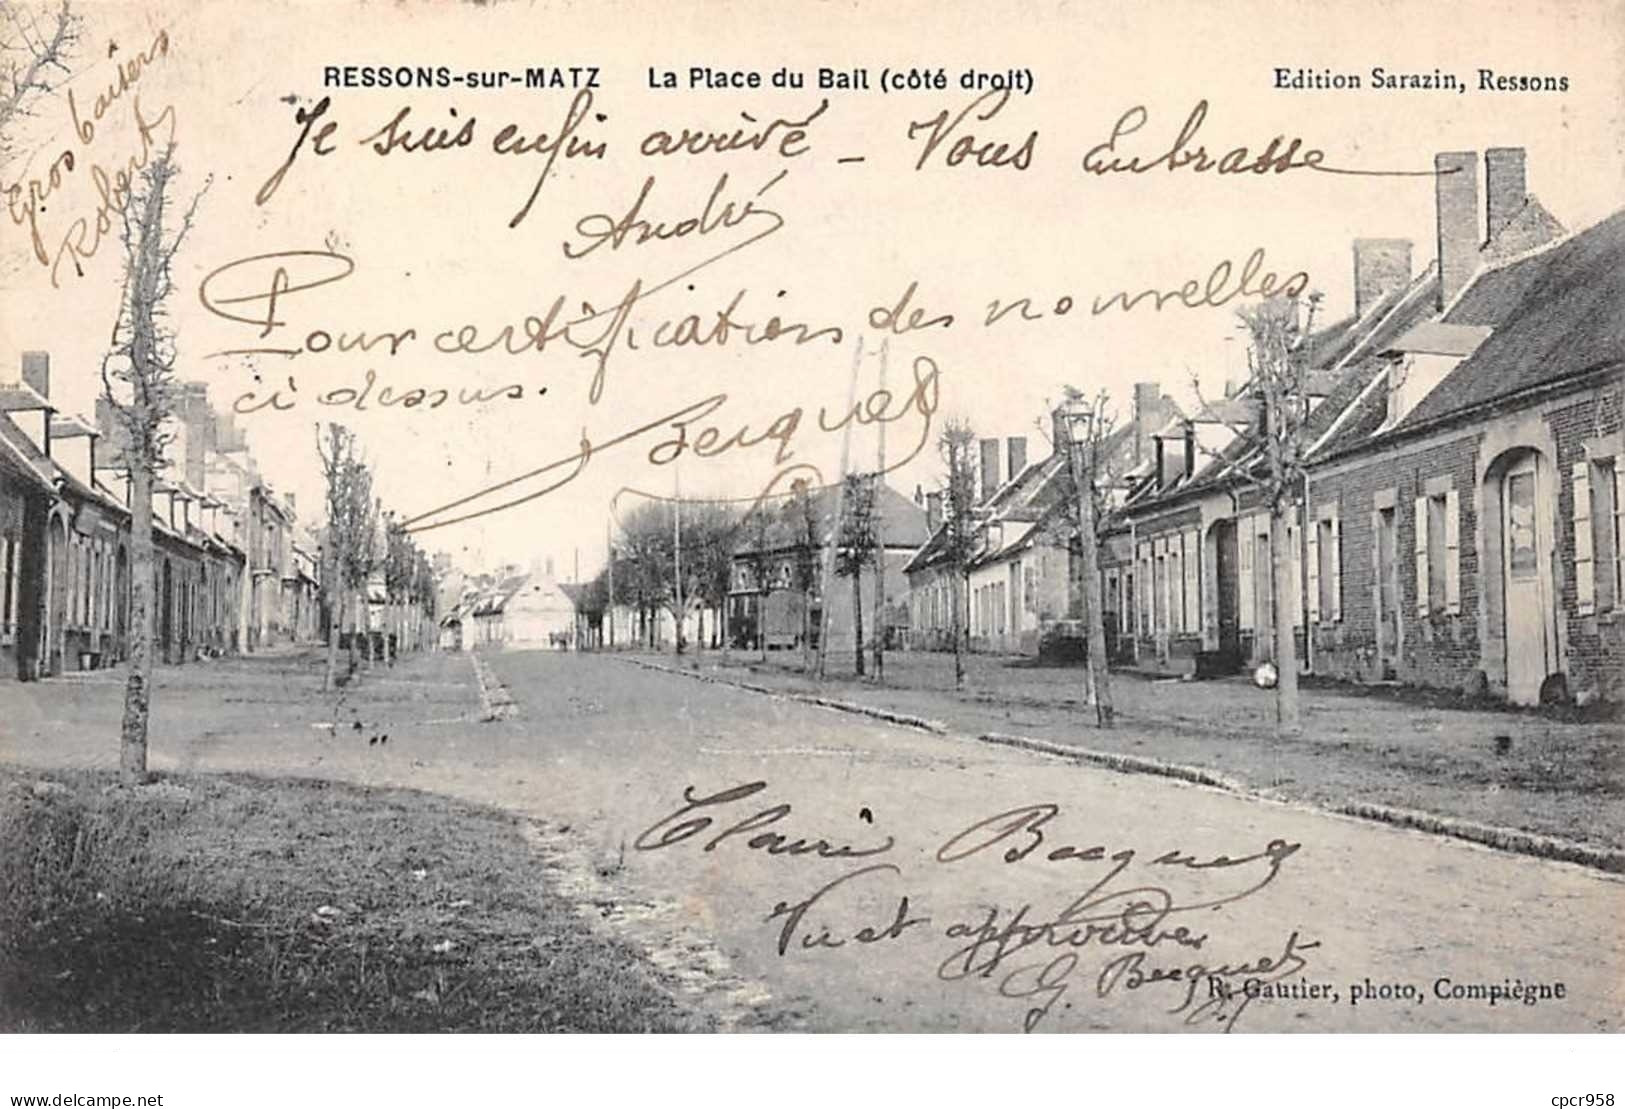 RESSONS-sur-MATZ La Place du Bail (côté droit)
Edition Sarazin, Ressons
Gros baisers
Robert
Je suis enfin arrivé – Vous Embrasse
André
Pour certification des nouvelles
ci dessus.
Becquet
Claire Becquet
Vu et approuver
G. Becquet
R. Gautier, photo, Compiègne
delcampe.net
cpcr958